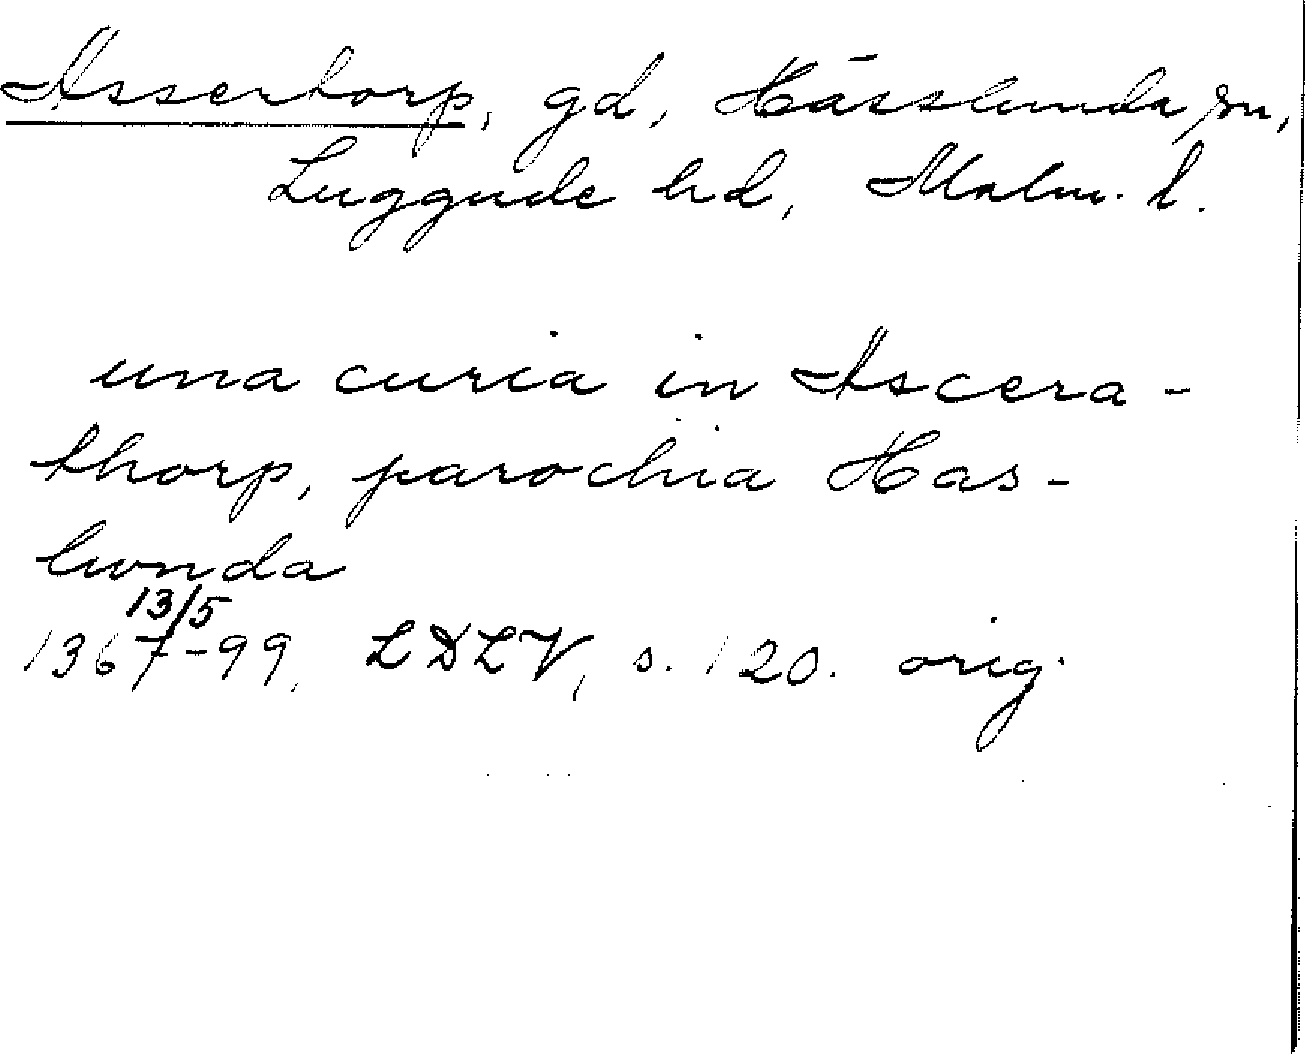 Assertorp, gd, Hässlunda sn,
Luggude hd, Malm. l.
una curia in Ascera-
thorp, parochia Has-
lwnda
13/5
1367-99, LDLV, s. 120. orig.